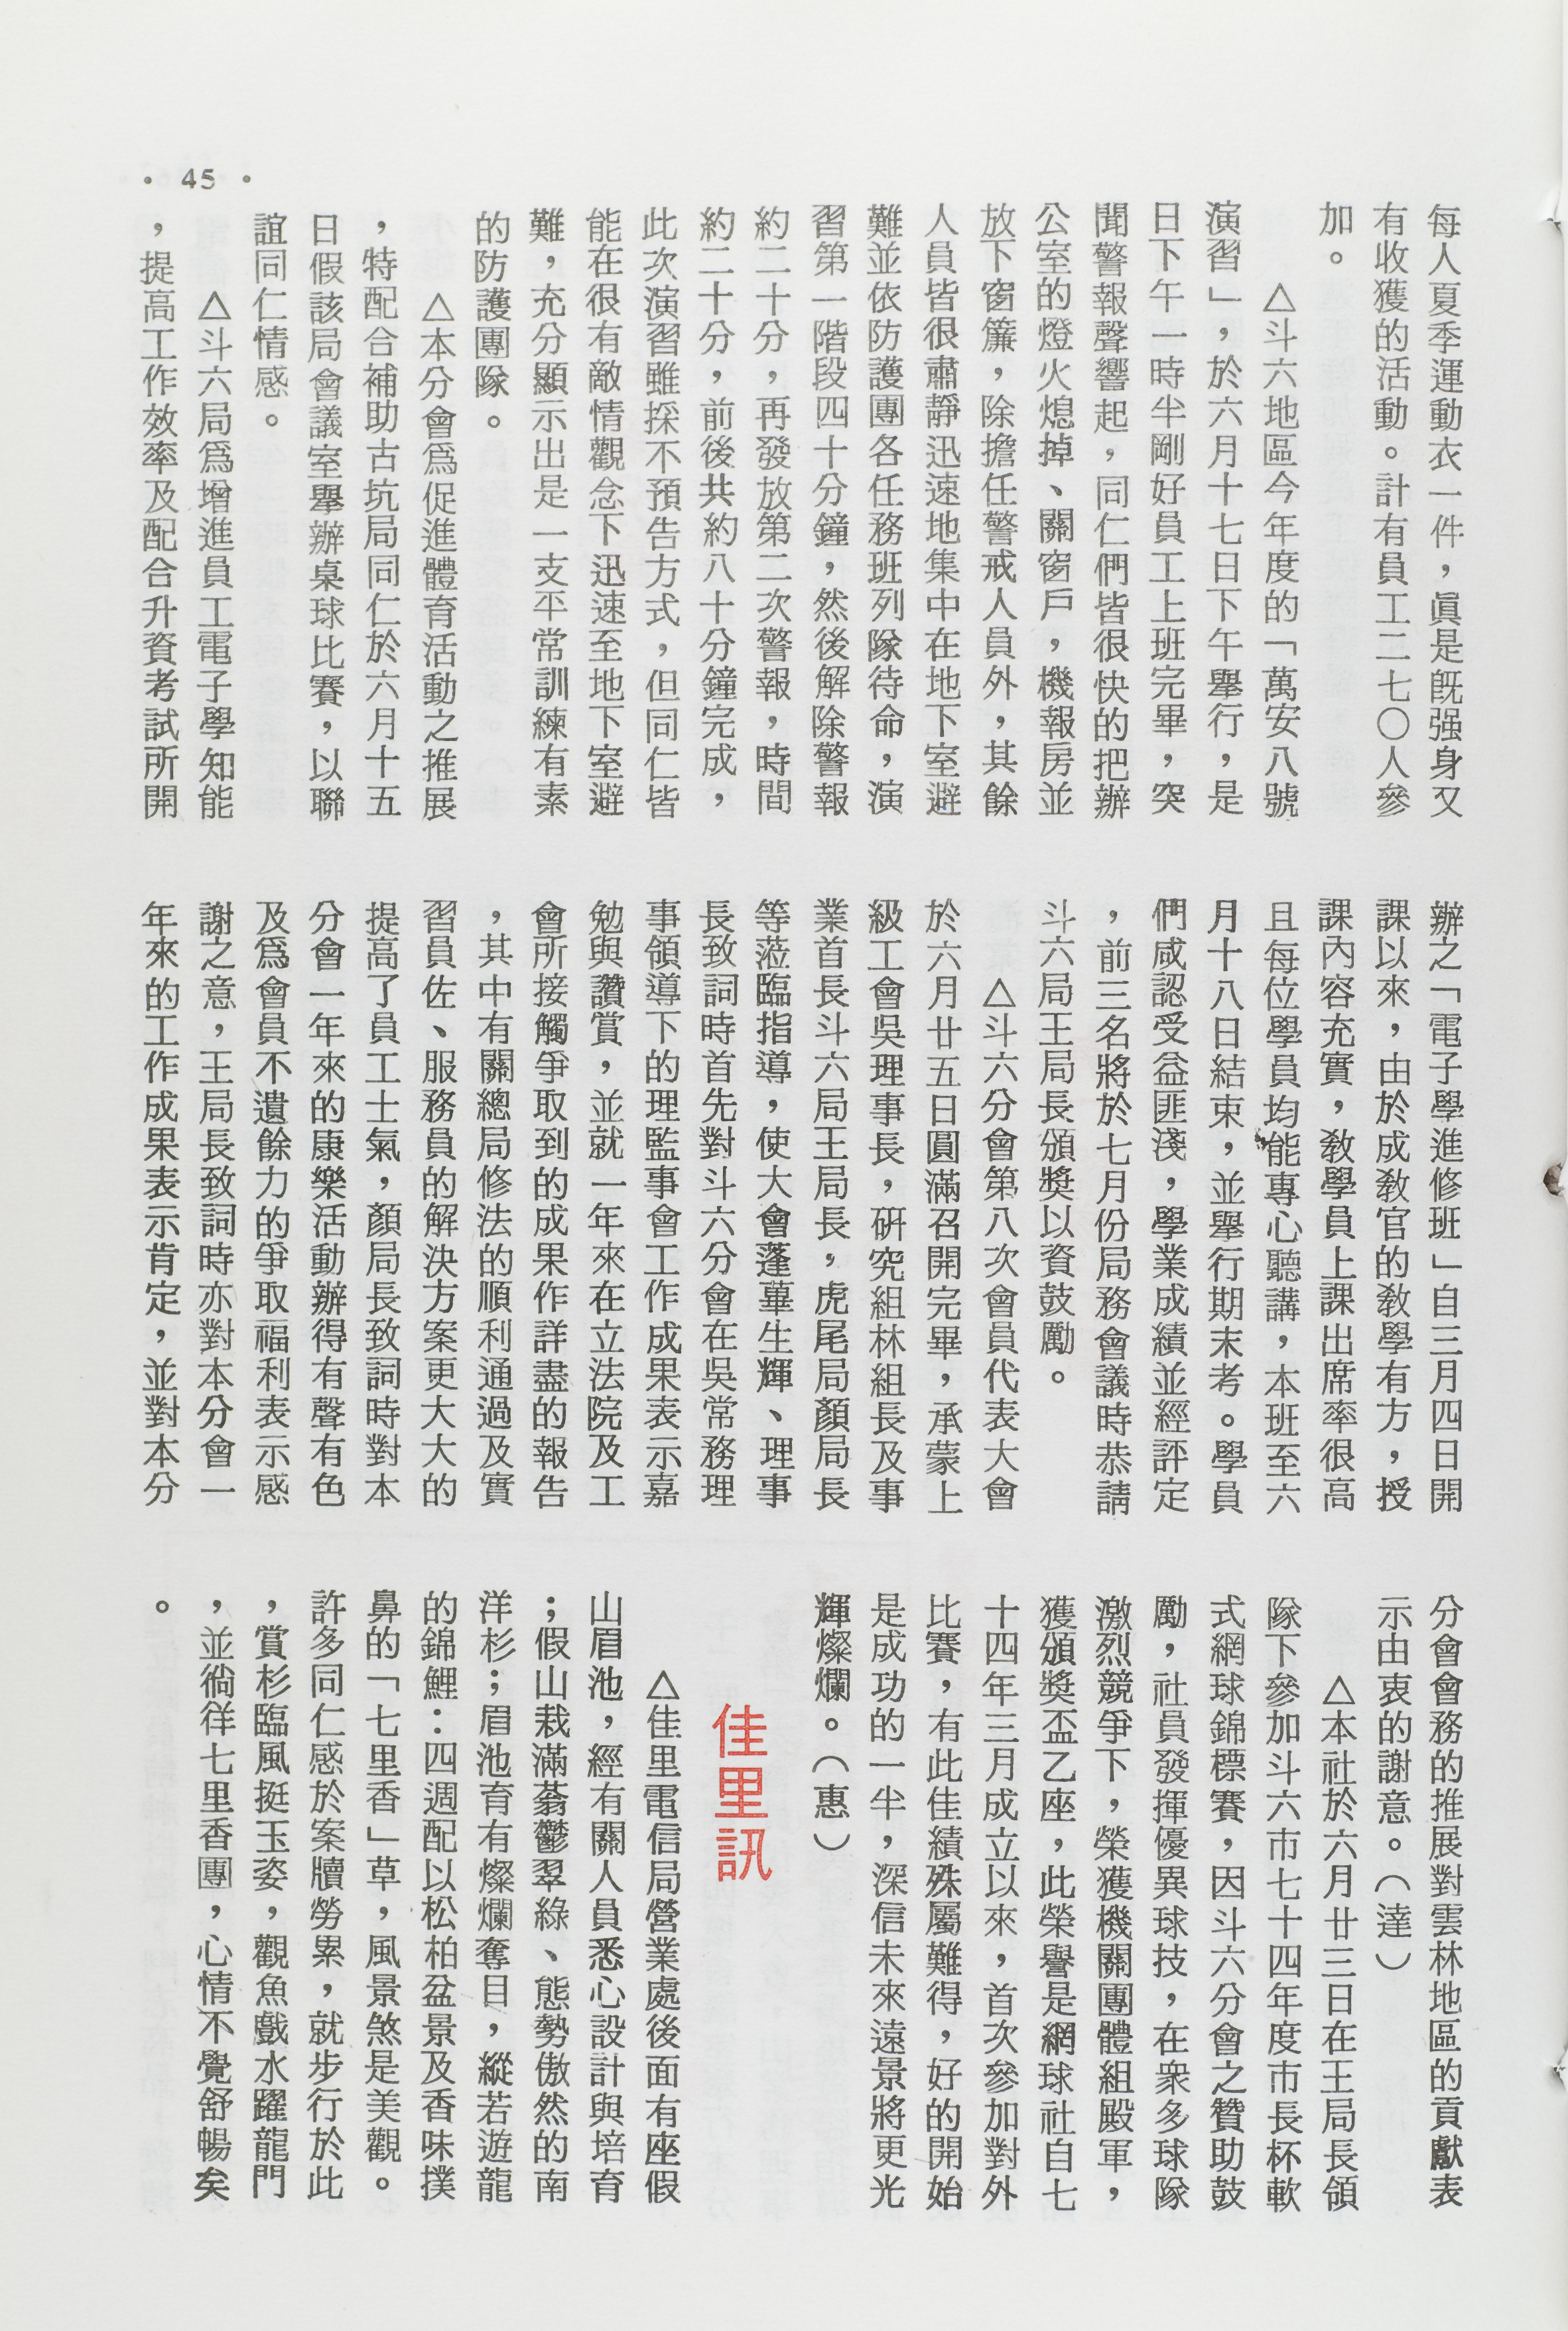 每人夏季運動衣一件，眞是旣强身又
有收獲的活動。計有員工二七〇人參
加。
△斗六地區今年度的「萬安八號
演習」，於六月十七日下午舉行，是
日下午一時半剛好員工上班完畢，突
聞警報聲響起，同仁們皆很快的把辦
公室的燈火熄掉、關窗戶，機報房並
放下窗簾，除擔任警戒人員外，其餘
人員皆很肅靜迅速地集中在地下室避
難並依防護團各任務班列隊待命，演
習第一階段四十分鐘，然後解除警報
約二十分，再發放第二次警報，時間
約二十分，前後共約八十分鐘完成，
此次演習雖採不預告方式，但同仁皆
能在很有敵情觀念下迅速至地下室避
難，充分顯示出是一支平常訓練有素
的防護團隊。
△本分會爲促進體育活動之推展
，特配合補助古坑局同仁於六月十五
日假該局會議室舉辦桌球比賽，以聯
誼同仁情感。
△斗六局爲增進員工電子學知能
，提高工作效率及配合升資考試所開
辦之「電子學進修班」自三月四日開
課以來，由於成敎官的敎學有方，授
課內容充實，敎學員上課出席率很高
且每位學員均能專心聽講，本班至六
月十八日結束，並舉行期末考。學員
們咸認受益匪淺，學業成績並經評定
，前三名將於七月份局務會議時恭請
斗六局王局長頒獎以資鼓勵。
△斗六分會第八次會員代表大會
於六月廿五日圓滿召開完畢，承蒙上
級工會吳理事長，硏究組林組長及事
業首長斗六局王局長，虎尾局顏局長
等蒞臨指導，使大會蓬蓽生輝、理事
長致詞時首先對斗六分會在吳常務理
事領導下的理監事會工作成果表示嘉
勉與讚賞，並就一年來在立法院及工
會所接觸爭取到的成果作詳盡的報告
，其中有關總局修法的順利通過及實
習員佐、服務員的解決方案更大大的
提高了員工士氣，顏局長致詞時對本
分會一年來的康樂活動辦得有聲有色
及爲會員不遺餘力的爭取福利表示感
謝之意，王局長致詞時亦對本分會一
年來的工作成果表示肯定，並對本分
分會會務的推展對雲林地區的貢獻表
示由衷的謝意。（達）
△本社於六月廿三日在王局長領
隊下參加斗六市七十四年度市長杯軟
式網球錦標賽，因斗六分會之贊助鼓
勵，社員發揮優異球技，在衆多球隊
激烈競爭下，榮獲機關團體組殿軍，
獲頒獎盃乙座，此榮譽是網球社自七
十四年三月成立以來，首次參加對外
比賽，有此佳績殊屬難得，好的開始
是成功的一半，深信未來遠景將更光
輝燦爛。（惠）
佳里訊
△佳里電信局營業處後面有座假
山眉池，經有關人員悉心設計與培育
；假山栽滿蓊鬱翠綠、態勢傲然的南
洋杉；眉池育有燦爛奪目，縱若遊龍
的錦鯉：四週配以松柏盆景及香味撲
鼻的「七里香」草，風景煞是美觀。
許多同仁感於案牘勞累，就步行於此
，賞杉臨風挺玉姿，觀魚戲水躍龍門
，並徜徉七里香團，心情不覺舒暢矣
。
• 45 •